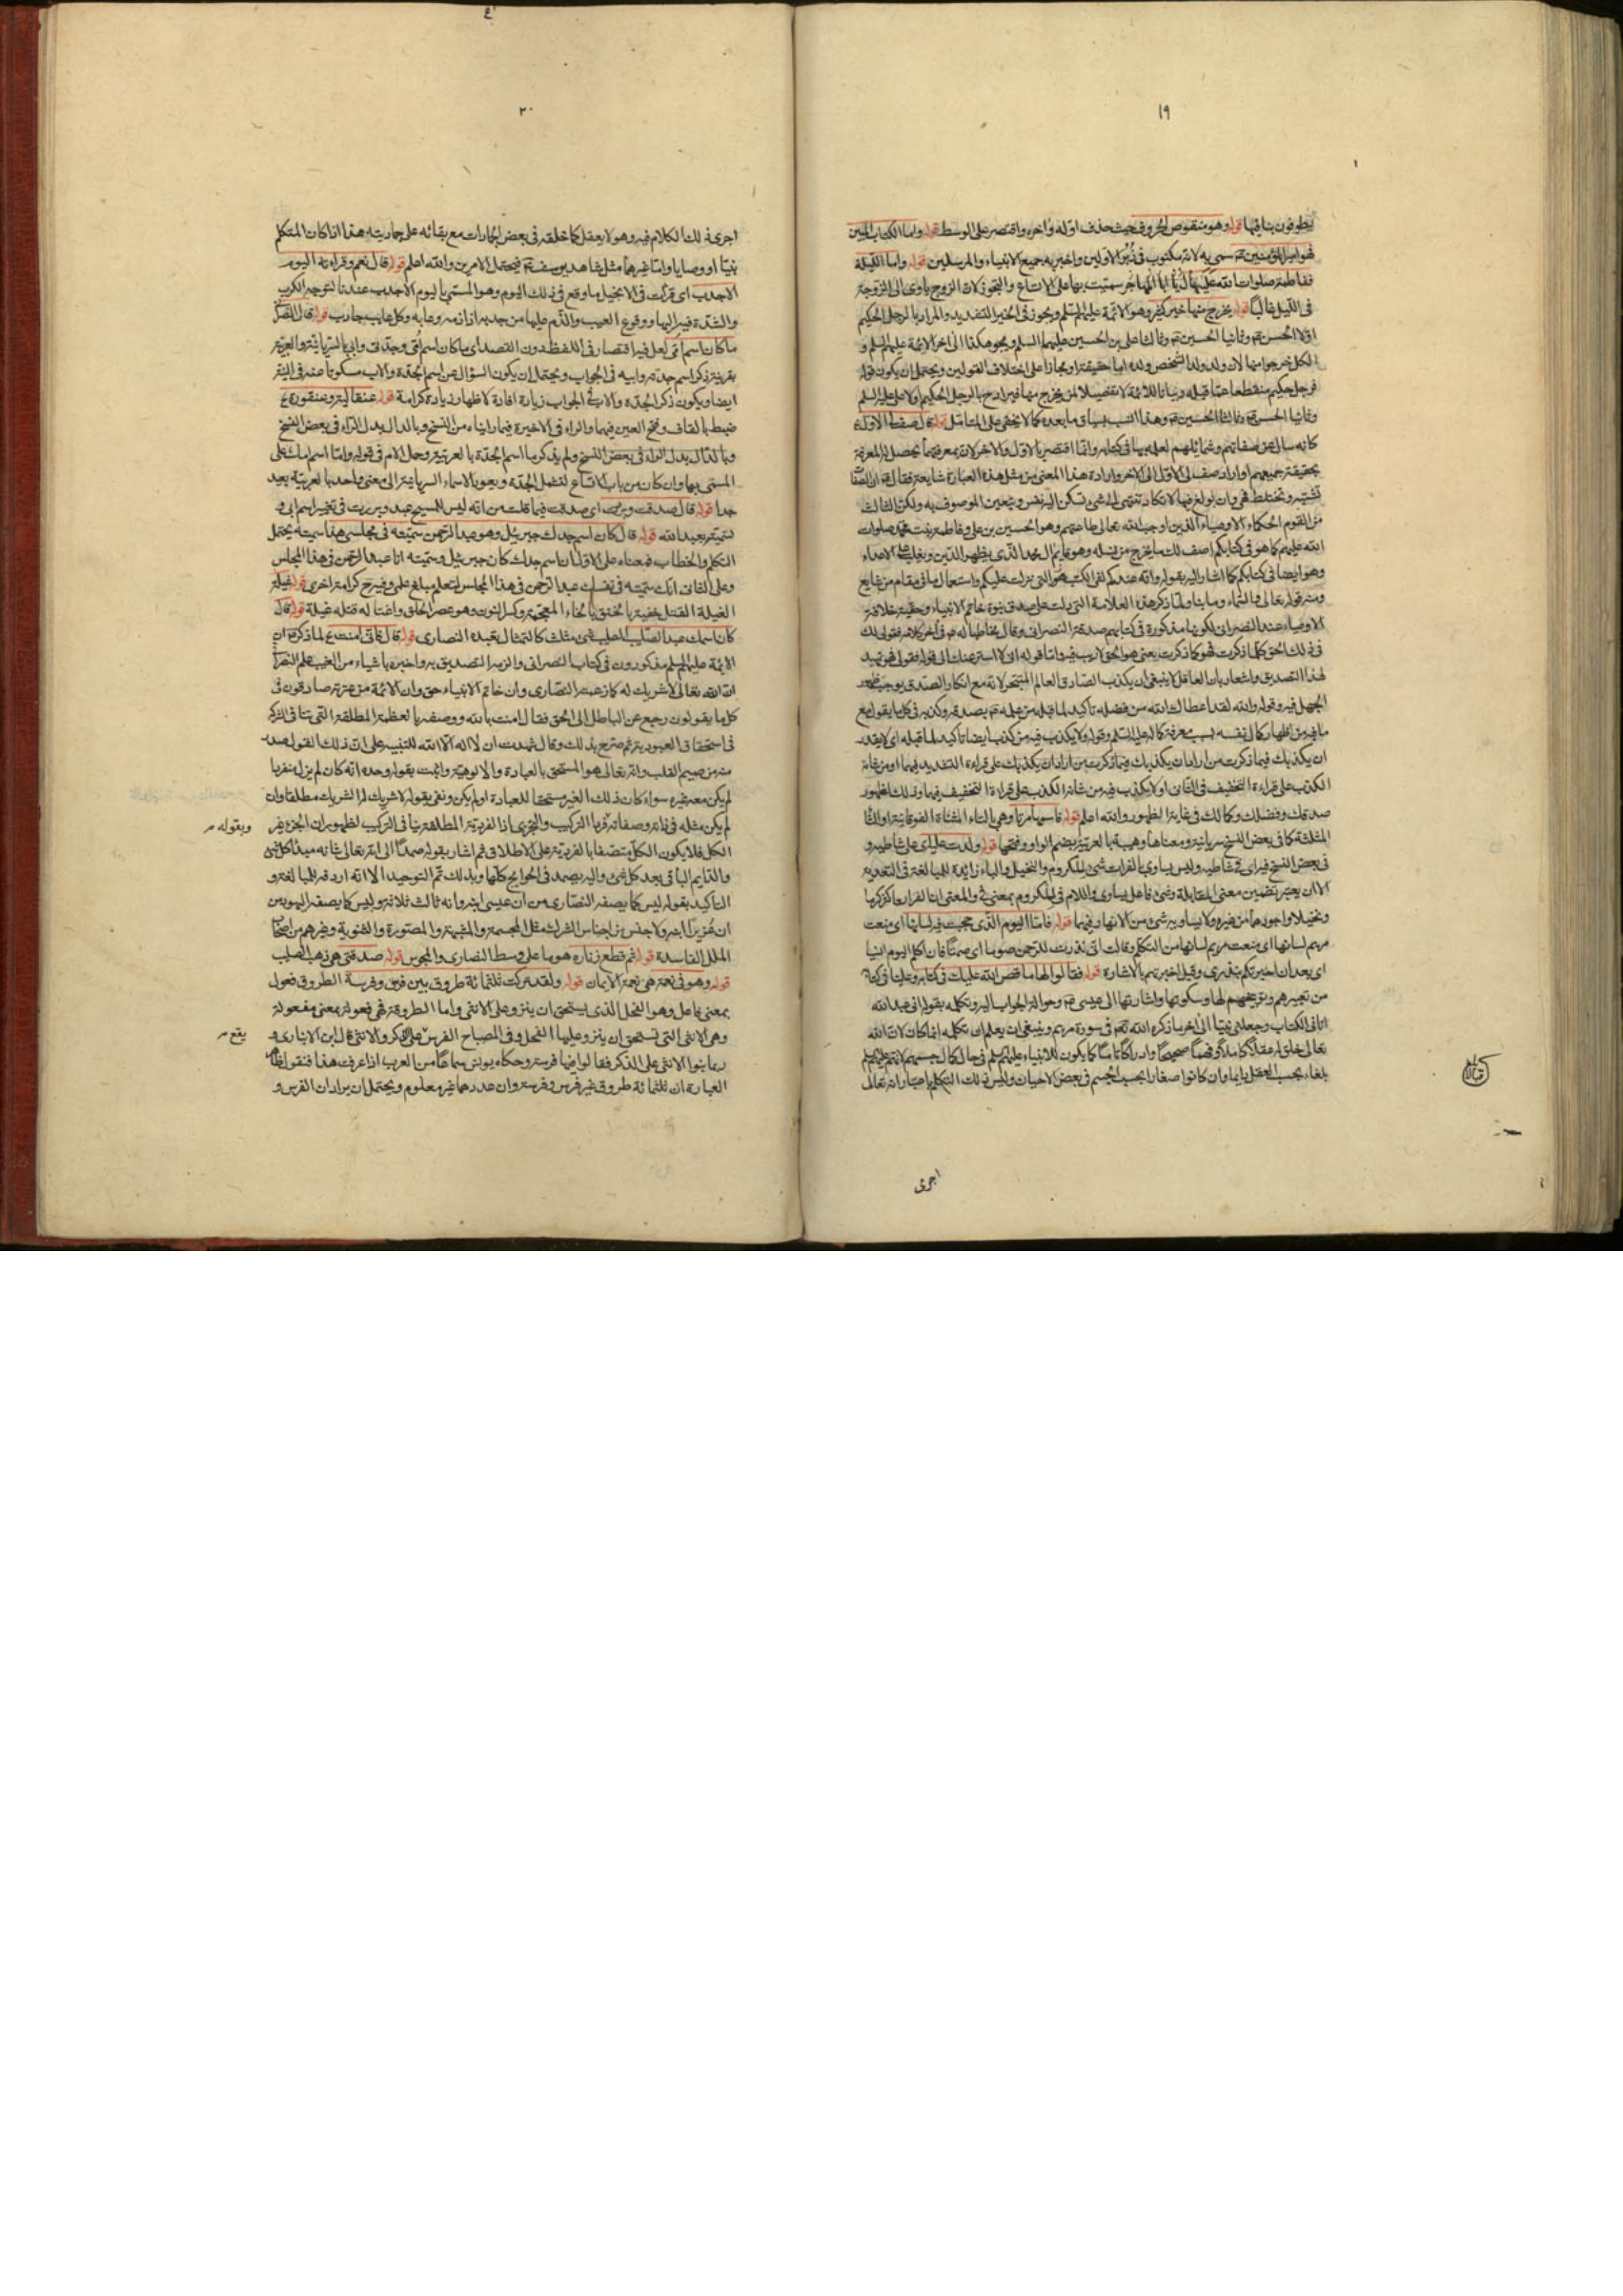 ١٩
يطوفون بنا فيها قوله وهو منقوص الحروف حيث حذف اوله وآخره واقتصر على الوسط قوله واما الكتاب المبين
فهو امير المؤمنين سمى به لانه مكتوب فى زبر الاولين واخبر به جميع الانبياء والمرسلين قوله واما الليلة
ففاطمة صلوات الله عليها سميت بها على الاتساع والتجوز لان الزوج ياوى الى الزوجة
فى الليل غالبا قوله يخرج منها خير كثير وهو الائمة عليهم السلم ويجوز فى الخير التشديد والمراد بالرجل الحكيم
اولا الحسن وثانيا الحسين وثالثا على بن الحسين عليهما السلم ويجرى هكذا الى اخر الائمة عليهم السلم و
الكل خرجوا منها لان ولد ولد الشخص ولده اما حقيقة او مجازا على اختلاف القولين ويحتمل ان يكون قوله
فرجل حكيم منقطعا عما قبله وبيانا للائمة لا تفصيلا لمن يخرج منها فيراد بالرجل الحكيم الاول على عليه السلم
وثانيا الحسن وثالثا الحسين وهذا انسب بسياق ما بعده كما لا يخفى على المتأمل قوله قال صف لى الاول و
كانه سال عن صفاتهم وشمائلهم لعلمه بها فى كتابه وانما اقتصر بالاول والاخر لان بمعرفتهما يحصل له المعرفة
بحقيقة جميعهم او اراد صف لى الاول الى الاخر وارادة هذا المعنى من مثل هذه العبارة شايعة فقال ان الصفات
تشتبه وتختلط فهى وان بولغ فيها لا تكاد تنتهى الى شئ تسكن اليه نفس ويتعين الموصوف به ولكن الثالث
من القوم الحكماء الاوصياء الذين اوجب الله تعالى طاعتهم وهو الحسين بن على وفاطمة بنت محمد صلوات
الله عليهم كما هو فى كتابكم اصف لك ما يخرج من نسله وهو قايم ال محمد الذى يظهر الدين ويغلب على الاعداء
وهو ايضا فى كتابكم كما اشار اليه بقوله وانه عندكم لفى الكتب التى نزلت عليكم واستعمال ما فى مقام من شايع
ومنه قوله تعالى والسماء وما بناها ولما ذكر هذه العلامة التى دلت على صدق نبوة خاتم الانبياء وحقية خلافة
الاوصياء عند النصرانى لكونها مذكورة فى كتابهم صدقه النصرانى وقال مخاطبا له فى اخر كلامه فقولى لك
فى ذلك الحق كلما ذكرت فهو كما ذكرت يعنى هو الحق لا ريب فيه واما قوله انى لا استر عنك الى قوله فقولى فهو تمهيد
لهذا التصديق واشعار بان العاقل لا ينبغى ان يكذب الصادق العالم المتبحر لانه مع انكار الصدق يوجب ظهور
الجهل فيه وقوله والله لقد اعطاك الله من فضله تاكيد لما قبله من علمه بصدقه وكذبه فى كل ما يقول مع
ما فيه من اظهار كمال نفسه بسبب معرفة كماله عليه السلم وقوله ولا يكذب فيه من كذب ايضا تاكيد لما قبله اى لا يقدر
ان يكذبك فيما ذكرت من اراد ان يكذبك فيما ذكرت من اراد ان يكذبك على قراءة التشديد فيهما او من شانه
الكذب على قراءة التخفيف فى الثانى او لا يكذب فيه من شانه الكذب على قراءة التخفيف فيهما وذلك لظهور
صدقك وفضلك وكمالك فى غاية الظهور والله اعلم قوله فاسمها مرثا وهى بالتاء المثناة الفوقانية او الثاء
المثلثة كما فى بعض النسخ سريانية ومعناها وهيبة بالعربية بضم الواو وفتحها قوله ولدت عليه اى على شاطيه و
فى بعض النسخ فيه اى فى شاطيه وليس يساوى بالفرات شئ للكروم والنخيل والباء زائدة للمبالغة فى التعدية
الا ان يعتبر تضمين معنى المقابلة وشئ فاعل يساوى واللام فى للكروم بمعنى فى والمعنى ان الفرات اكثر كرما
ونخيلا واجودهما من غيره ولا يساويه شئ من الانهار فيهما قوله فاما اليوم الذى حجبت فيه لسانها اى منعت
مريم لسانها اى منعت مريم لسانها من التكلم وقالت انى نذرت للرحمن صوما اى صمتا فلن اكلم اليوم انسيا
اى بعد ان اخبرتكم بنذرى وقيل اخبرتهم بالاشارة قوله فقالوا لها ما قص الله عليك فى كتابه وعلينا فى كتابه
من تعييرهم وتوبيخهم لها وسكوتها واشارتها الى عيسى وحوالة الجواب اليه وتكلمه بقوله انى عبد الله
اتانى الكتاب وجعلنى نبيا الى اخر ما ذكره الله فى سورة مريم وينبغى ان يعلم ان تكلمه انما كان لان الله
تعالى خلق له عقلا كاملا وفهما صحيحا وادراكا تاما كما يكون للانبياء عليهم السلم فى حال كمال جسمهم لانهم عليهم السلم
بلغاء بحسب العقل دايما وان كانوا صغارا بحسب الجسم فى بعض الاحيان وليس ذلك التكلم باعتبار انه تعالى
اجرى
٢٠
اجرى ذلك الكلام فيه وهو لا يعقل كما خلقه فى بعض الجمادات مع بقائه على جماديته هذا اذا كان المتكلم
نبيا او وصيا واما غيرهما مثل شاهد يوسف فيحتمل الامرين والله اعلم قوله قال نعم وقراءته اليوم
الاجدب اى قرأت فى الانجيل ما وقع فى ذلك اليوم وهو المسمى باليوم الاجدب عندنا لتوجه الكرب
والشدة فيه اليها ووقوع العيب والذم عليها من جدبه اذا ذمه وعابه وكل عايب جادب قوله قال النصرانى
ما كان اسم امى لعل فيه اقتصار فى اللفظ دون القصد اى ما كان اسم امى وجدتى وابى بالسريانية والعربية
بقرينة ذكر اسم جدته وابيه فى الجواب ويحتمل ان يكون السؤال عن اسم الجدة والاب مسكوتا عنه فى البين
ايضا ويكون ذكر الجدة والاب فى الجواب زيارة افادة لاظهار زيادة كرامة قوله عنقالية وعنقورة
ضبط بالقاف وفتح العين فيهما والراء فى الاخيرة فيما رايناه من النسخ وبالدال بدل الراء فى بعض النسخ
وبالذال بدل الراء فى بعض النسخ ولم يذكر ما اسم الجدة بالعربية وحمل الام فى قوله واما اسم امك على
المسمى بها وان كان من باب الاتساع لتشمل الجدة ويعود الاسماء السريانية الى معنى واحد بالعربية بعيد
جدا قوله قال صدقت وبررت اى صدقت فيما قلت من انه ليس للمسيح عبد وبررت فى تغيير اسم ابى و
تسميته بعبد الله قوله قال كان اسم جدك جبرئيل وهو عبد الرحمن سميته فى مجلسى هذا سميته يحتمل
التكلم والخطاب فمعناه على الاول ان اسم جدك كان جبرئيل وسميته انا عبد الرحمن فى هذا المجلس
وعلى الثانى انك سميته فى نفسك عبد الرحمن فى هذا المجلس لتعلم مبلغ علمى وفيه ح كرامة اخرى قوله غيلة
الغيلة القتل خفية بالخنق بالخاء المعجمة وكسر النون وهو عصر الحلق واغتاله قتله غيلة قوله قال
كان اسمك عبد الصليب الصليب شئ مثلث كالتمثال يعبده النصارى قوله قال فانى امنت لما ذكر ان
الائمة عليهم السلم مذكورون فى كتاب النصرانى والزمه التصديق به واخبره باشياء من الغيب علم النصرانى
ان الله تعالى لا شريك له كما زعمته النصارى وان خاتم الانبياء حق وان الائمة من عترته صادقون فى
كل ما يقولون رجع عن الباطل الى الحق فقال امنت بالله ووصفه بالعظمة المطلقة التى تنافى الشركة
فى استحقاق العبودية ثم صرح بذلك وقال شهدت ان لا اله الا الله للتنبيه على ان ذلك القول صدر
منه من صميم القلب وانه تعالى هو المستحق بالعبادة والالوهية واثبت بقوله وحده انه كان لم يزل منفردا
لم يكن معه غيره سواء كان ذلك الغير مستحقا للعبادة او لم يكن ونفى بقوله لا شريك له الشريك مطلقا وان
لم يكن مثله فى ذاته وصفاته فردا التركيب والتجزى اذ الفردية المطلقة ينافى التركيب لظهور ان الجزء غير
وبقوله
الكل فلا يكون الكل متصفا بالفردية على الاطلاق ثم اشار بقوله صمدا الى انه تعالى شانه مبدأ كل شئ
والدايم الباقى بعد كل شئ واليه يصمد فى الحوايج كلها وبذلك تم التوحيد الا انه اردفه للمبالغة و
التاكيد بقوله ليس كما يصفه النصارى من ان عيسى ابنه وانه ثالث ثلاثة وليس كما يصفه اليهود من
ان عزيرا ابنه ولا جنس من اجناس الشرك مثل المجسمة والمشبهة والمصورة والثنوية وغيرهم من اصحاب
الملل الفاسدة قوله ثم قطع زناره هو ما على وسط النصارى والمجوس قوله صدقتى هى ذهب الصليب
قوله وهو فى نعمة هى نعمة الايمان قوله ولقد تركت ثلثمائة طروق بين فرس وفرسة الطروق فعول
بمعنى فاعل وهو الفحل الذى يستحق ان ينزو على الانثى واما الطروقة فهى فعولة بمعنى مفعولة
وهى الانثى التى تستحق ان ينزو عليها الفحل وفى المصباح الفرس على الذكر والانثى قال ابن الانبارى و
يقع
ربما بنوا الانثى على الذكر فقالوا فيها فرسة وحكاه يونس سماعا من العرب اذا عرفت هذا فنقول ظاهر
العبارة ان ثلثمائة طروق غير فرس وفرسة وان عددهما غير معلوم ويحتمل ان يراد ان الفرس و